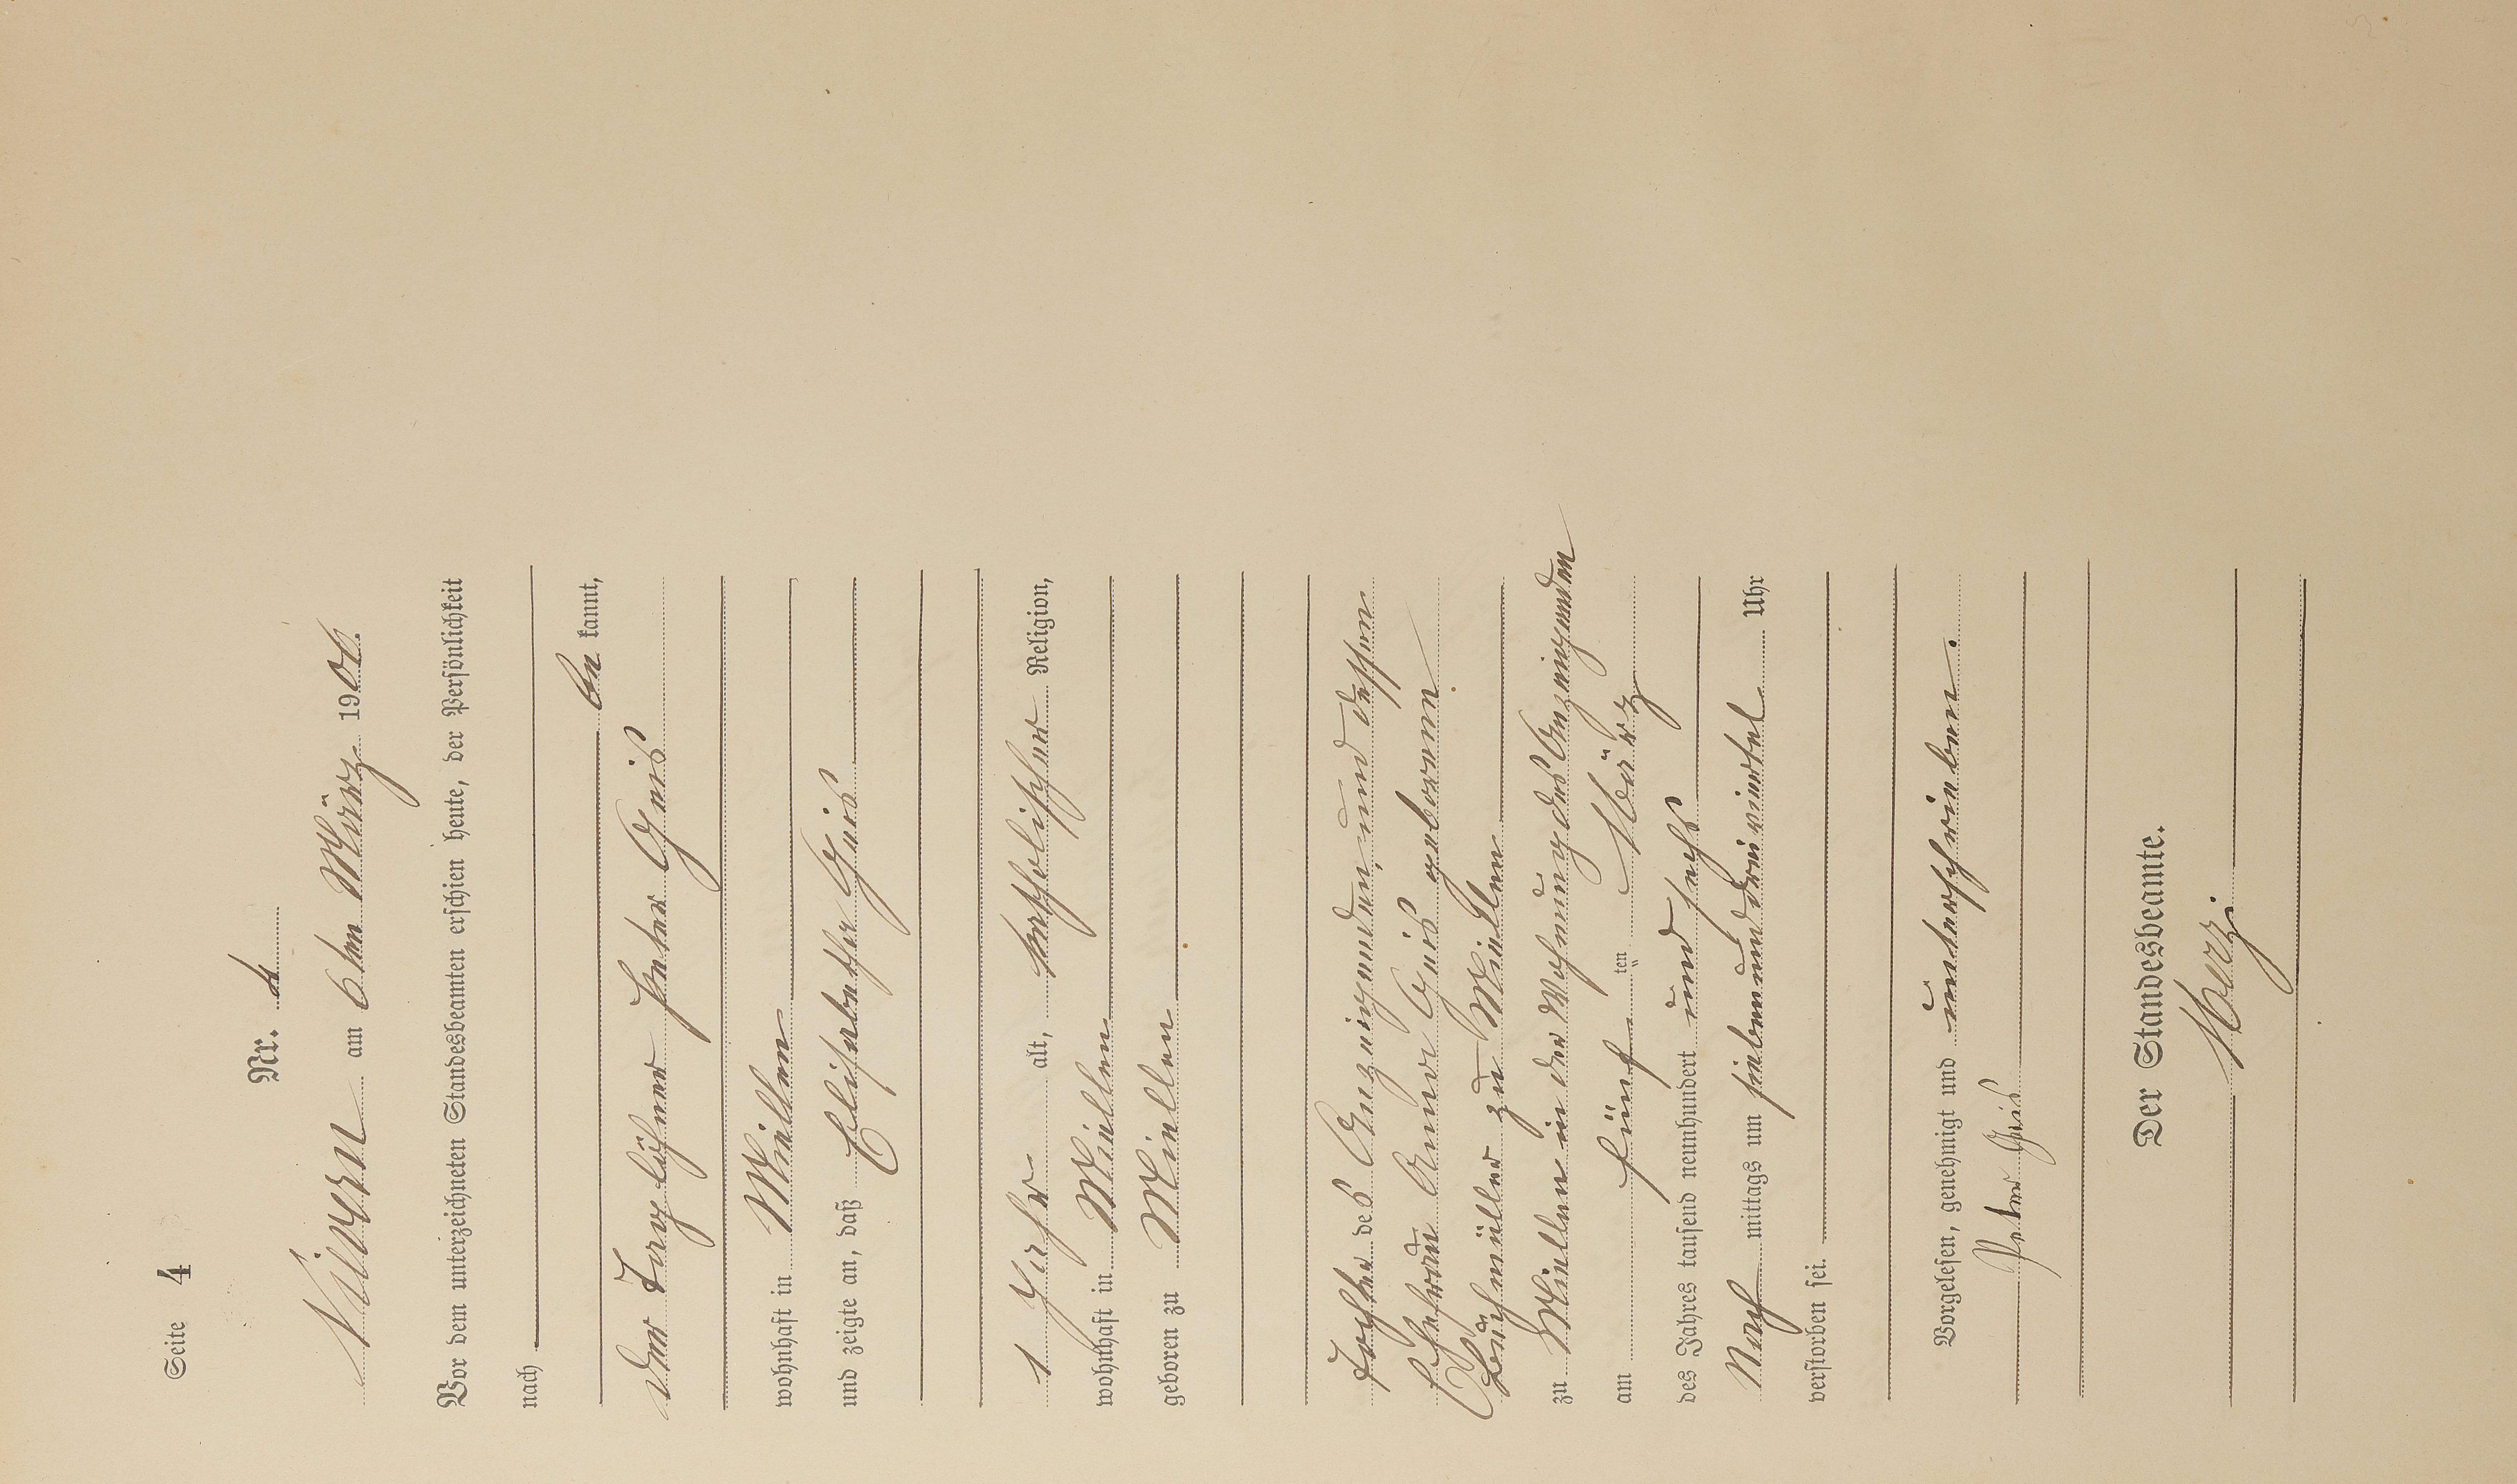 Seite 4
Nr. 4
Nievern am 6ten März 1906.
Vor dem unterzeichneten Standesbeamten erschien heute, der Persönlichkeit
nach
be kannt,
der Taglöhner Peter Geis
wohnhaft in Miellen
und zeigte an, daß Elisabetha Geis
1 Jahr alt, katholischer Religion,
wohnhaft in Miellen
geboren zu Miellen
Tochter des Anzeigenden, und dessen
Ehefrau Anna Geis geborenen
Buchmüller zu Miellen
zu Miellen in der Wohnung des Anzeigenden
am fünf ten März
des Jahres tausend neunhundert und sechs
Nach mittags um sieben und drei viertel Uhr
verstorben sei.
Vorgelesen, genehmigt und unterschrieben.
Peter Geis
Der Standesbeamte.